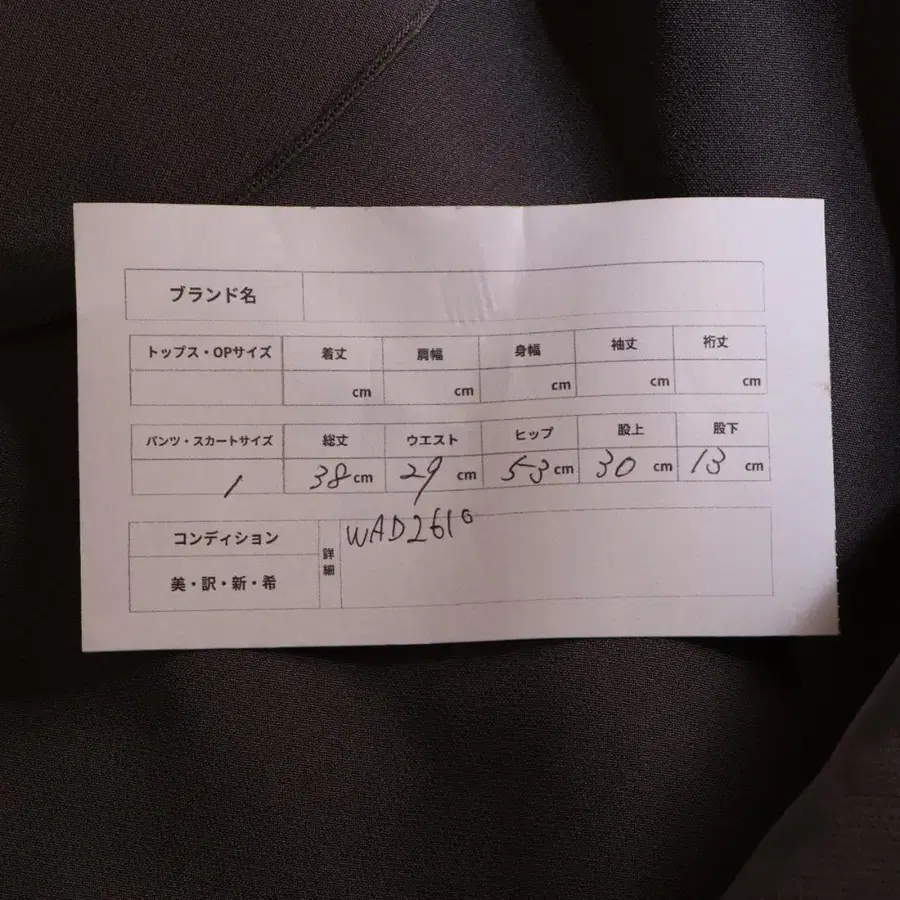 ブランド名
トップス・OPサイズ 着丈 肩幅 身幅 袖丈 裄丈
cm cm cm cm cm
パンツ・スカートサイズ 総丈 ウエスト ヒップ 股上 股下
1 38cm 29cm 53cm 30cm 13cm
コンディション 詳細 WAD2610
美・訳・新・希